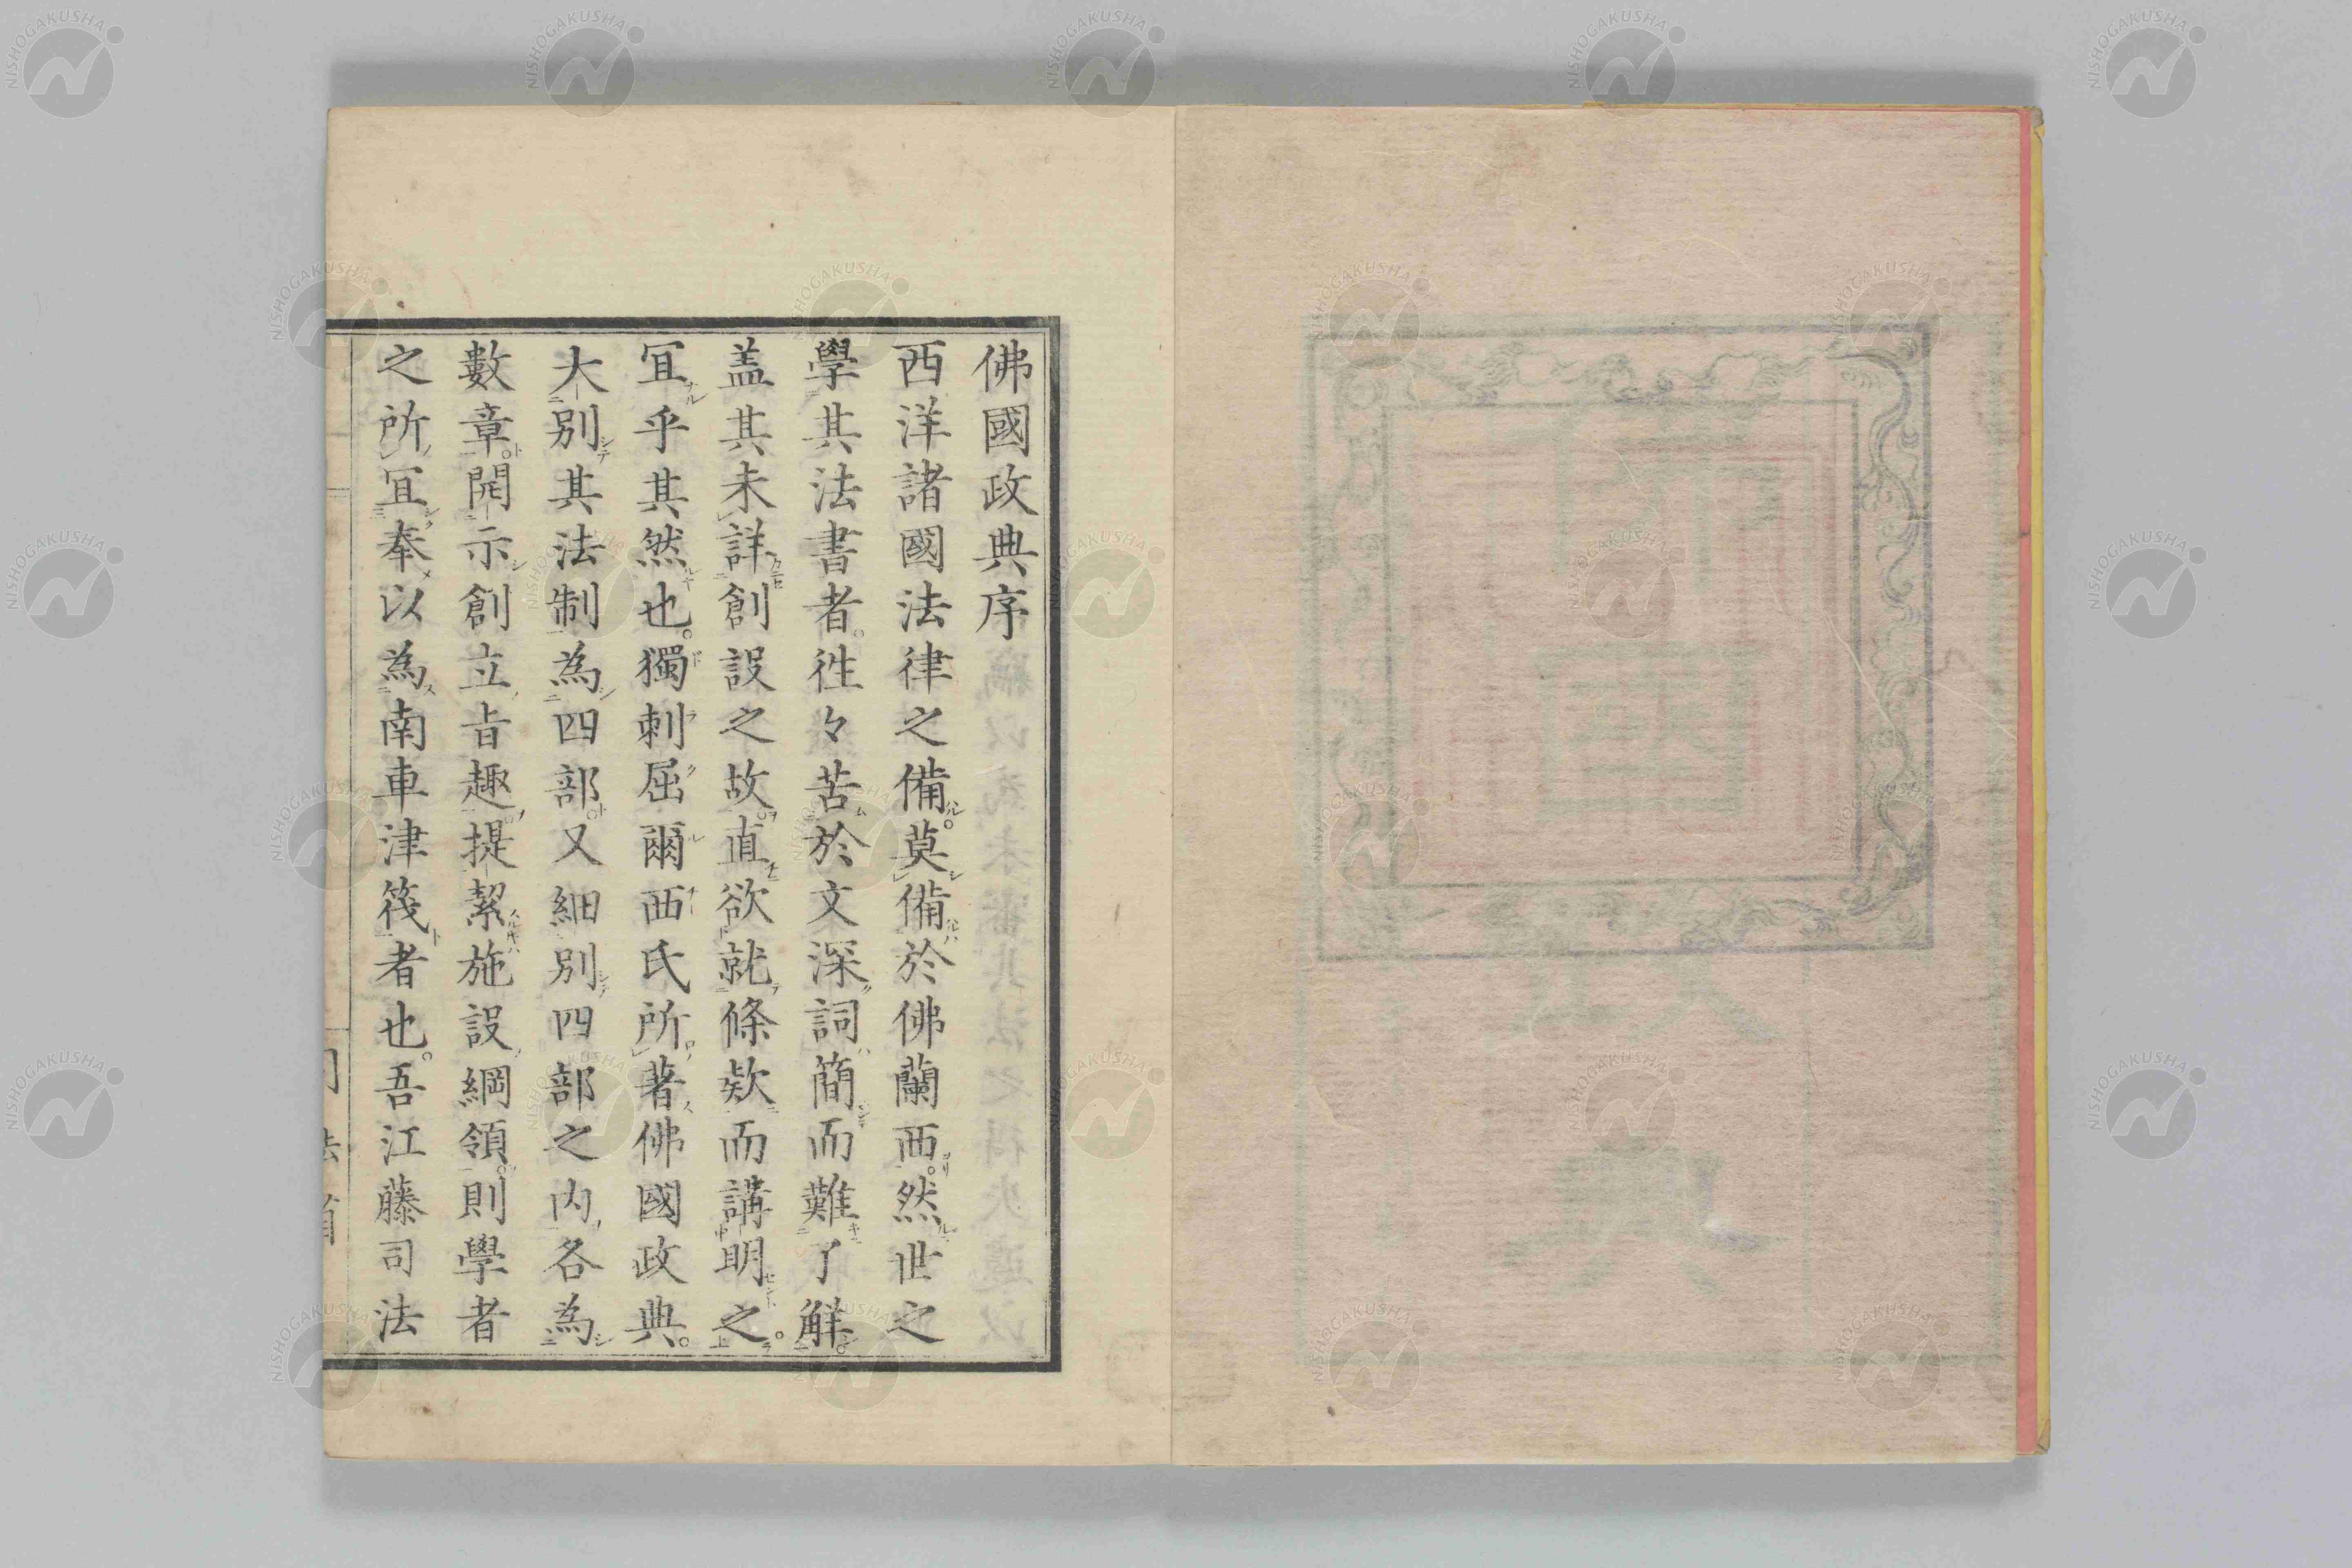 佛國政典序
西洋諸國法律之備。莫備於佛蘭西。然世之
學其法書者。徃々苦於文深詞簡而難了解。
盖其未詳創設之故。直欲就條欵而講明之。
冝乎其然也。獨刺屈爾西氏所著佛國政典。
大別其法制為四部。又細別四部之内各為
數章。開示創立㫖趣。提挈施設綱領。則學者
之所冝奉以為南車津筏者也。吾江藤司法